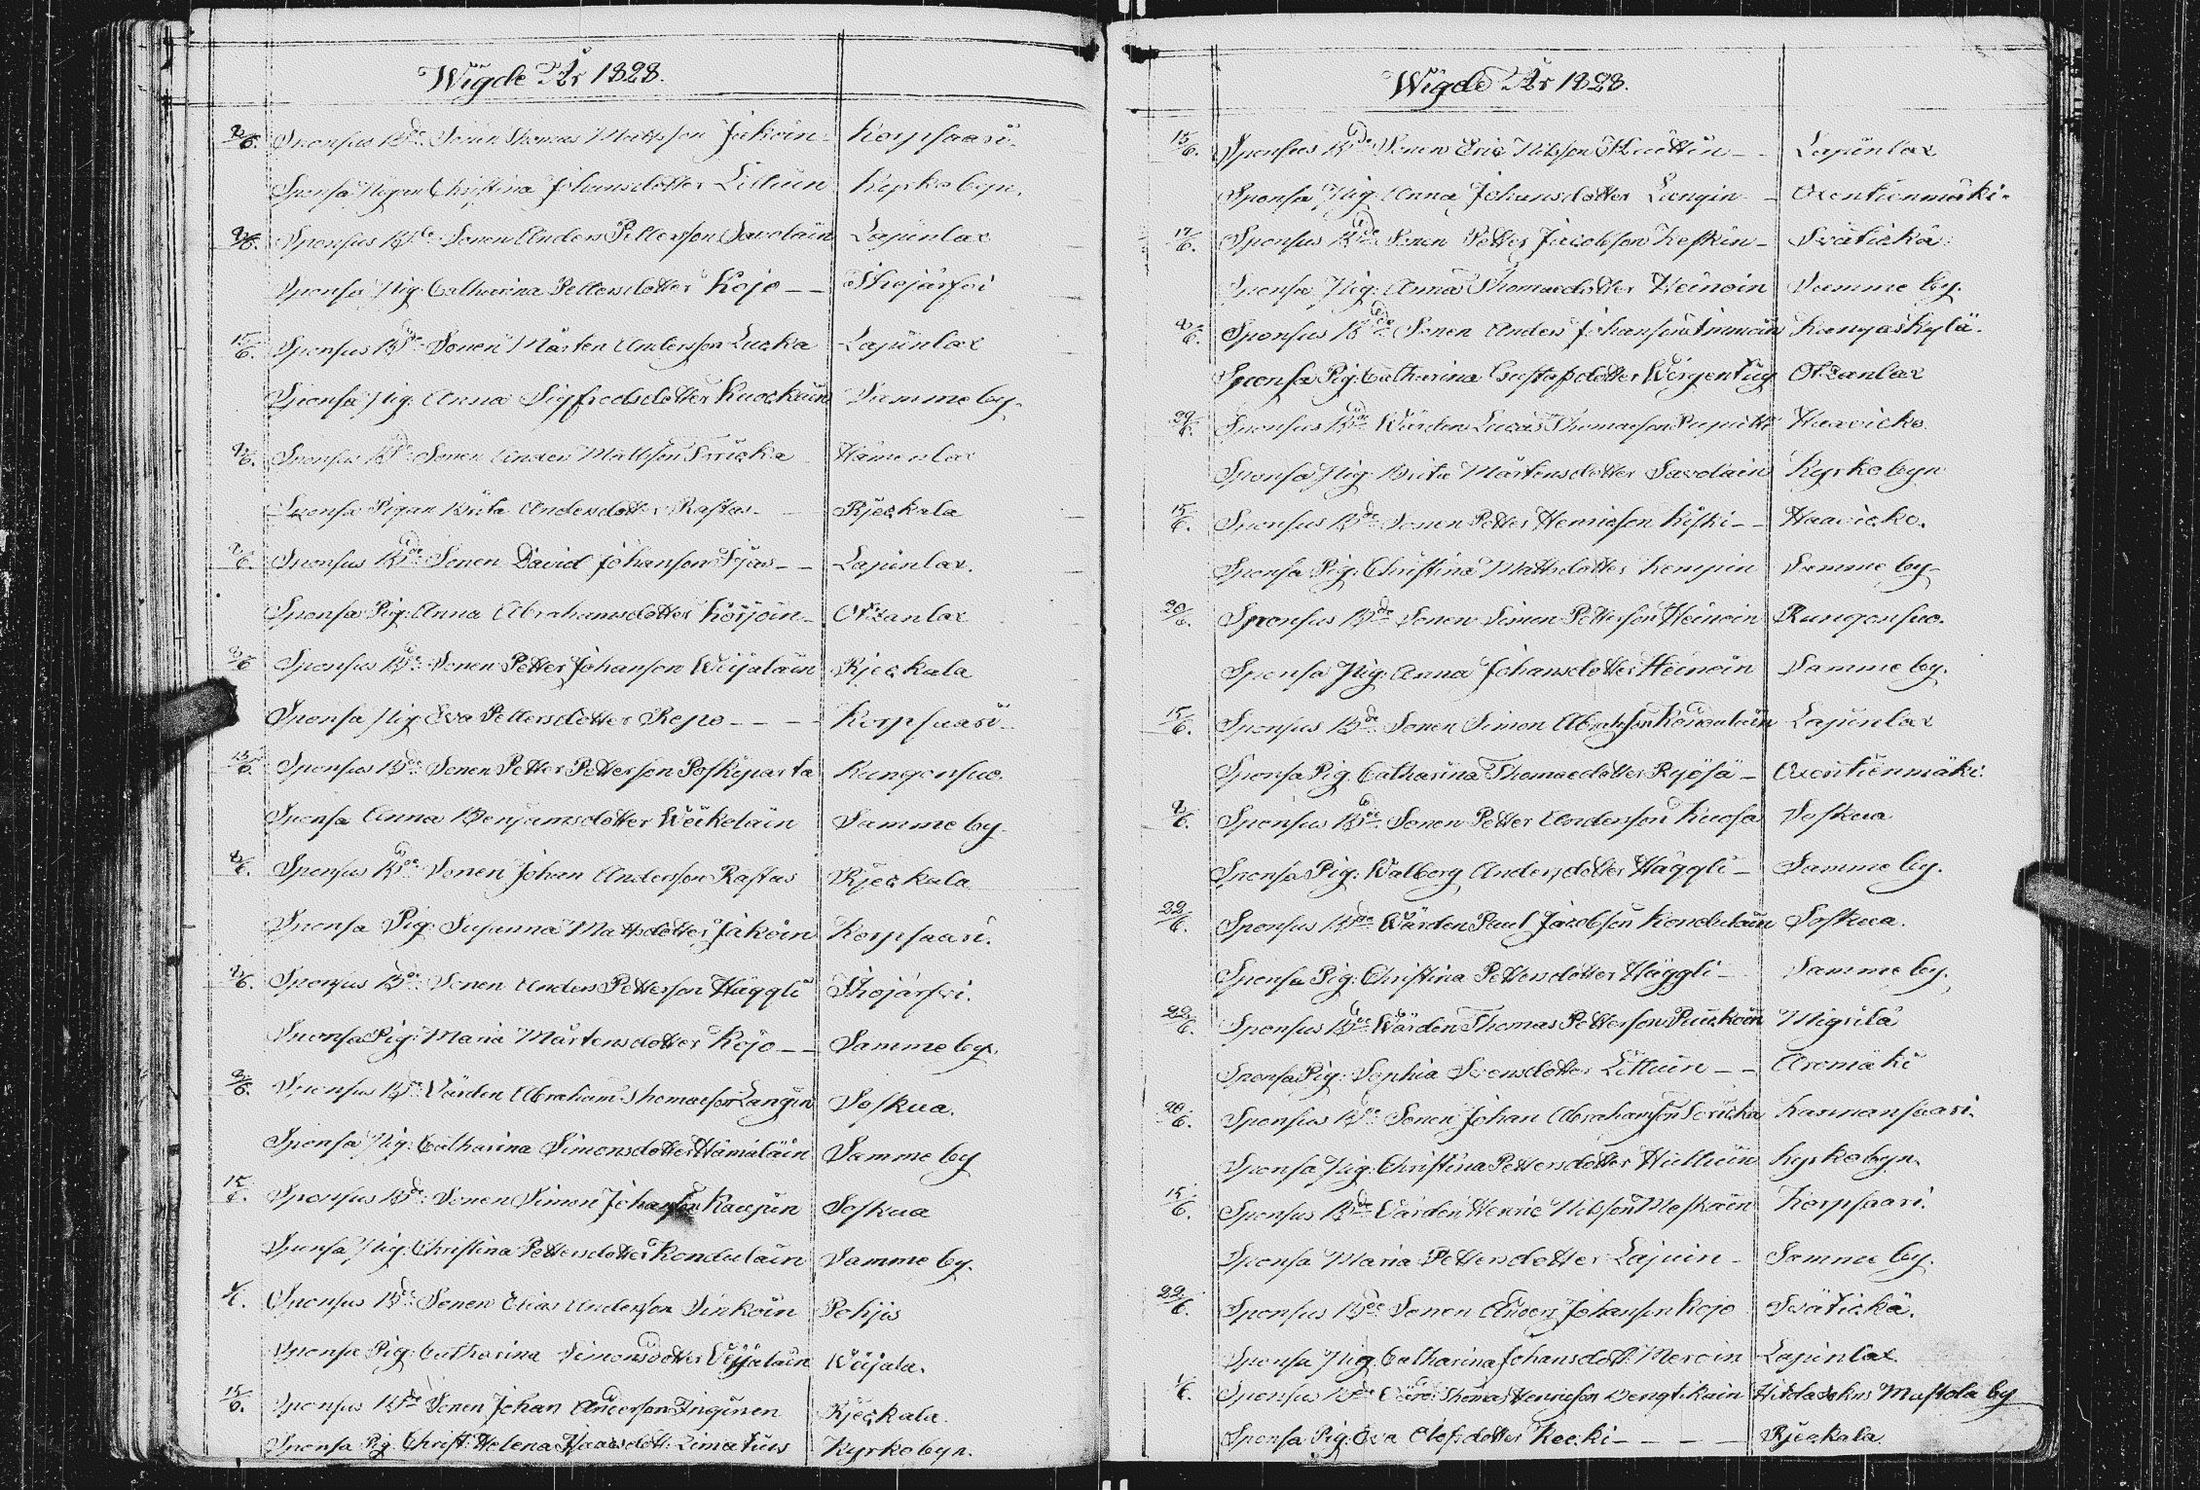 Wigde År 1828.
8/6. Sponsus Bde: Sonen Thomas Mattsson Jäkoin Korpsaari.
Sponsa Pigan Christina Johansdotter Littuin Kyrkobyn.
Sponsus Bde: Sonen Anders Pettersson Savolain Lajünlax
Sponsa Pig. Catharina Pettersdotter Kojo Ihojärfvi
15/6. Sponsus Bde Sonen Mårten Andersson Lucka Lajünlax
Sponsa Pig. Anna Sigfredsdotter Kuockain Samme by.
Sponsus Bde Sonen Anders Mattsson Soricka Hämenlax
Sponsa Pigan Brita Andersdotter Rastas Rjeckala
Sponsus Bde Sonen David Johansson Lajünlax.
Sponsa Pig. Anna Abrahamsdotter Otzanlax
8/6 Sponsus Bde Sonen Petter Johanson Wiijalain Rjeckala
Sponsa Pig. Eva Pettersdotter Repo Korpsaari
15/6. Sponsus Bde Sonen Petter Petterson Poskiparta Rungonsuo.
Sponsa Anna Benjamsdotter Weikelain Samme by.
8/6. Sponsus Bde Sonen Johan Andersson Rastas Rjeckala
Sponsa Pig. Susanna Mattsdotter Jäkoin Korpsaari.
Sponsus Bde Sonen Anders Petterson Häggli Ihojärfvi.
Sponsa Pig. Maria Mårtensdotter Kojo Samme by.
Sponsus Bde Värden Abraham Thomasson Langin Soskua.
Sponsa Pig. Catharina Simonsdotter Hämäläin Samme by
15/6. Sponsus Bde Sonen Simon Johansson Kaupin Soskua
Sponsa Pig. Christina Pettersdotter Kondulain Samme by.
Sponsus Bde Sonen Elias Anderson Sinkoin Pohjis
Sponsa Pig. Catharina Simonsdotter Wiijalain Wiijala.
15/6. Sponsus Bde Sonen Johan Anderson Inginen Rjeckala.
Sponsa Pig. Christ: Helena Limatius Kyrkobyn.
Wigde År 1828.
15/6. Sponsus Bde Sonen Eric Nilsson Lajünlax
Sponsa Pig. Anna Johansdotter Langin Axentienmäki.
17/6. Sponsus Bde Sonen Petter Jacobsson Keskin Svätickä.
Sponsa Pig. Anna Thomasdotter Heinoin Samme by.
Sponsus Bde Sonen Anders Johansson Kangaskylä.
Sponsa Pig. Catharina Gustafsdotter Wirgentiy Otzanlax
Sponsus Bde Wärden Lucas Thomasson Puputti Haavicko
Sponsa Pig Brita Mårtensdotter Savolain Kyrkobyn
15/6 Sponsus Bde Sonen Petter Henricson Kiski Haavicko.
Sponsa Pig. Christina Mattsdotter Kempin Samme by
20/6. Sponsus Bde Sonen Simon Petterson Heinoin Rungonsuo.
Sponsa Pig. Anna Johansdotter Heinoin Samme by.
15/6. Sponsus Bde Sonen Simon Abrahsson Kondulain Lajünlax
Sponsa Pig. Catharina Thomasdotter Ryösä Axentienmäki.
Sponsus Bde Sonen Petter Anderson Kuosa Soskua
Sponsa Pig. Walborg Andersdotter Häggli Samme by.
22/6. Sponsus Bde Wärden Paul Jacobson Kondulain Soskua.
Sponsa Pig. Christina Pettersdotter Häggli Samme by.
22/6. Sponsus Bde Wärden Thomas Petterson Puckoin Migrila
Sponsa Pig. Sophia Svensdotter Littuin Aromäki
20/6. Sponsus Bde Sonen Johan Abrahamson Soricka Kaumansaari.
Sponsa Pig. Christina Pettersdotter Hulluin Kyrkobyn.
15/6. Sponsus Bde Värden Henric Nilsson Moskain Korpsaari.
Sponsa Maria Pettersdotter Lajuin Samme by.
22/6. Sponsus Bde Sonen Anders Johanson Kojo Svätickä.
Sponsa Pig. Catharina Johansdott. Meroin Lajünlax.
Sponsus Bde Thomas Henricson Bengtikain Hitola Sokns Mustola by
Sponsa Pig. Eva Olofsdotter Kocki Rjeckala.